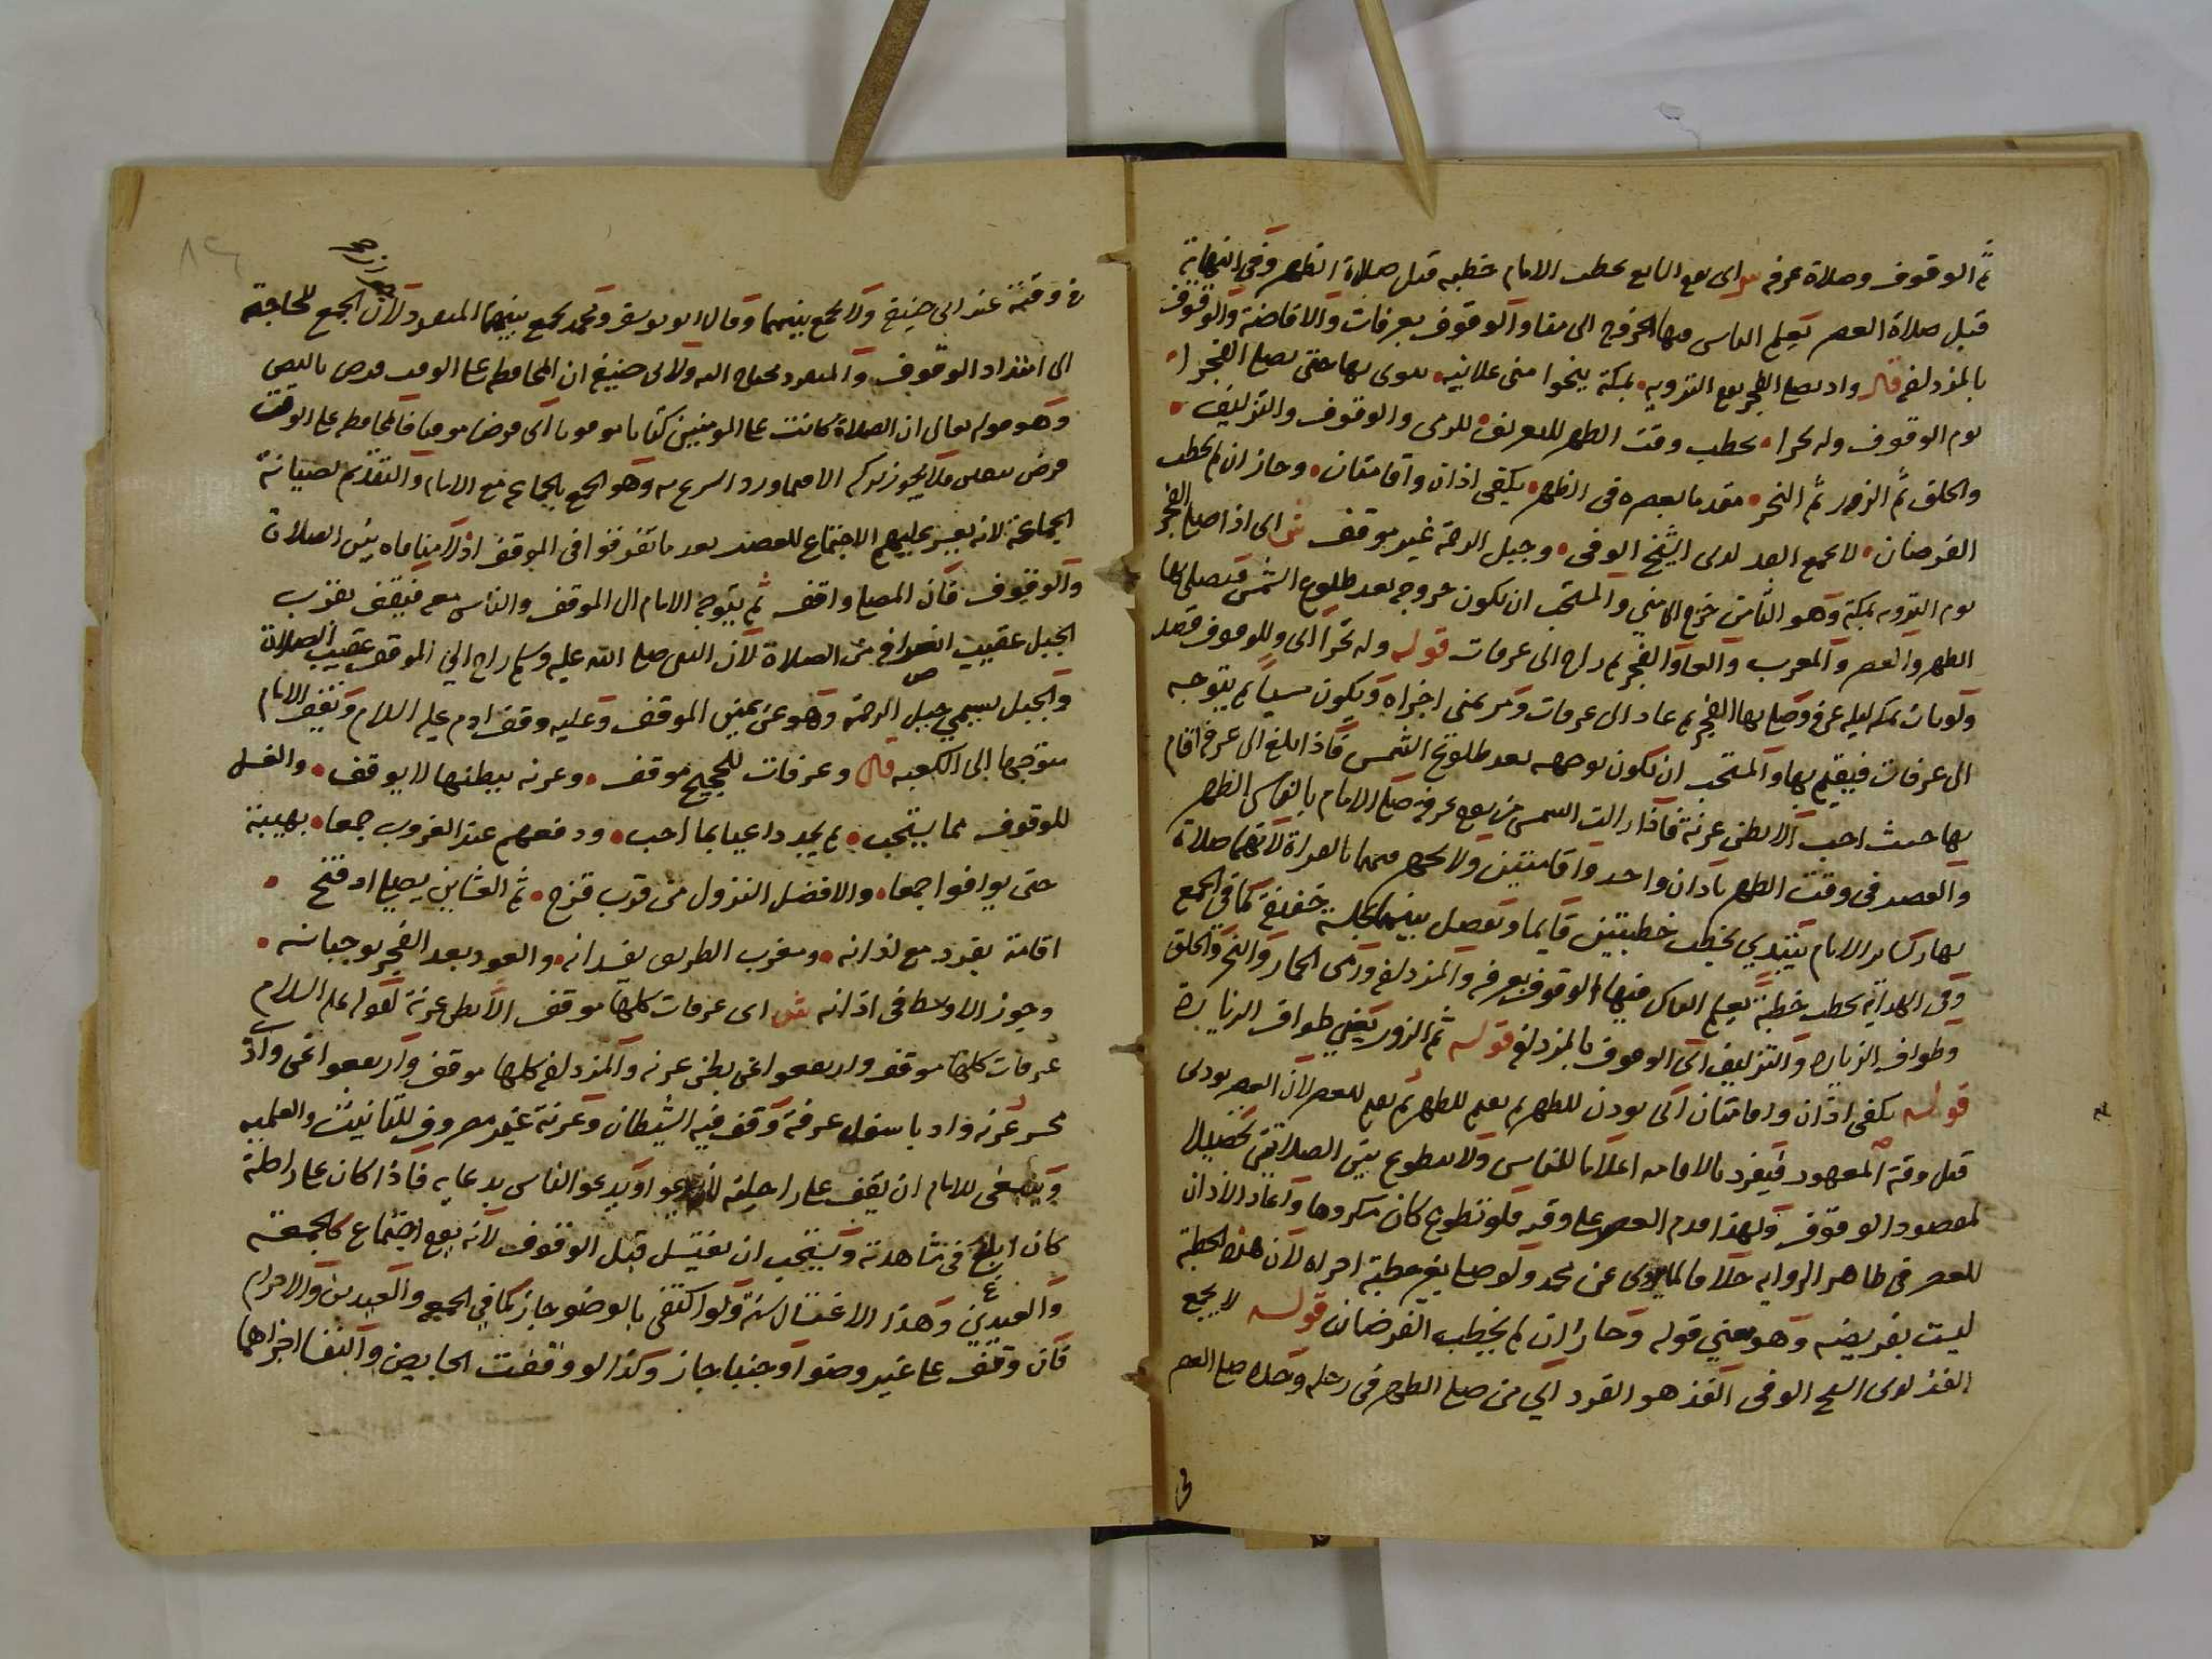 ثم الوقوف وصلاة عرفه اى يوم السابع يخطب الامام خطبه قبل صلاة الظهر وفى النهاية
قبل صلاة العصر يعلم الناس فيها الخروج الى منا والوقوف بعرفات والافاضة والوقوف
بالمزدلفه قال واد يصلى الفجر يوم الترويه بمكة ينحوا منى علانيه حتى يصلى الفجر
يوم الوقوف وله تحرا يخطب وقت الظهر للتعريف للرمى والوقوف والتزليف
والحلق ثم الزور ثم النحر مقدما بعصره فى الظهر يكفى اذان واقامتان وجاز ان لم يخطب
الفرضان لا يجمع الفذ لدى الشيخ الوفى وجبل الرحمة غير موقف ش اى اذا صلى الفجر
يوم الترويه بمكة وهو الثامن خرج الى منى والمستحب ان يكون خروجه بعد طلوع الشمس فيصلى بها
الظهر والعصر والمغرب والعشا والفجر ثم راح الى عرفات قوله وله تحرا اى وللوقوف قصد
ولو بات بمكه ليله عرفه وصلى بها الفجر ثم عاد الى عرفات ومر بمنى اجزاه ويكون مسيا ثم يتوجه
الى عرفات فيقيم بها والمستحب ان يكون توجهه بعد طلوع الشمس فاذا بلغ الى عرفه اقام
بها حيث احب الا بطن عرنة فاذا زالت الشمس من يوم عرفه صلى الامام بالناس الظهر
والعصر فى وقت الظهر باذان واحد واقامتين ولا يجهر فيهما بالقراة لانهما صلاة
نهار كساير الايام يبتدي يخطب خطبتين قايما وتفصل بينهما بجلسة خفيفة كما فى الجمع
وفى الهداية يخطب خطبة يعلم الناس فيها الوقوف بعرفه والمزدلفه ورمى الجمار والنحر والحلق
وطواف الزياره والتزليف اى الوقوف بالمزدلفه قوله ثم الزور يعني طواف الزيارة
قوله يكفى اذان واقامتان اى يوذن للظهر ثم يقيم للظهر ثم يقيم للعصر لان العصر يودى
قبل وقته المعهود فيفرد بالاقامه اعلاما للناس ولا يتطوع بين الصلاتين تحصيلا
لمقصود الوقوف ولهذا قدم العصر على وقته فلو تطوع كان مكروها واعاد الاذان
للعصر فى ظاهر الروايه خلافا لما روى عن محمد ولو صلى بغير خطبة اجزاه لان هذه الخطبة
ليست بفريضه وهو معني قوله وجاز ان لم يخطب الفرضان قوله لا يجمع
الفذ لدى الشيخ الوفى الفذ هو الفرد اي من صلى الظهر فى رحله وحده صلى العصر
فى
فى وقته عند ابى حنيفه ولا يجمع بينهما وقال ابو يوسف ومحمد يجمع بينهما المنفرد لان الجمع للحاجة
الى امتداد الوقوف والمنفرد محتاج اليه ولابى حنيفه ان المحافظه على الوقت فرض بالنص
وهو قوله تعالى ان الصلاة كانت على المومنين كتابا موقوتا اى فرضا موقتا فالمحافظه على الوقت
فرض بيقين فلا يجوز تركه الا فيما ورد الشرع به وهو الجمع بالجماعه مع الامام والتقديم لصيانة
الجماعة لانه يعسر عليهم الاجتماع للعصر بعد ما تفرقوا فى الموقف اذ لا منافاه بين الصلاة
والوقوف فان المصلى واقف ثم يتوجه الامام الى الموقف والناس معه فيقف بقرب
الجبل عقيب انصرافه من الصلاة لان النبى صلى الله عليه وسلم راح الى الموقف عقيب الصلاة
والجبل يسمي جبل الرحمه وهو عن يمين الموقف وعليه وقف ادم عليه السلام ويقف الامام
متوجها الى الكعبه قال وعرفات للحجيج موقف وعرنه ببطنها لا يوقف والغسل
للوقوف مما يستحب ثم يجد داعيا بما احب ودفعهم عند الغروب جمعا بهيبة
حتى يوافوا جمعا والافضل النزول من قرب قزح ثم العشاين يصلى اد فتح
اقامة بفرد مع اذانه ومغرب الطريق بفسدانه والعود بعد الفجر يوجبانه
وجوز الاوسط فى اذانه ش اى عرفات كلها موقف الا بطن عرنة لقوله عليه السلام
عرفات كلها موقف وارتفعوا عن بطن عرنه والمزدلفه كلها موقف وارتفعوا عن وادى
محسر عرنه واد باسفل عرفة وقف فيه الشيطان وعرنة غير مصروف للتانيث والعلميه
وينبغى للامام ان يقف على راحلته ليدعوا ويدعو الناس بدعايه فاذا كان على راحلة
كان ابلغ فى مشاهدته ويستحب ان يغتسل قبل الوقوف لانه يوم اجتماع كالجمعة
والعيدين وهذا الاغتسال سنة ولو اكتفى بالوضو جاز كما فى الجمعه والعيدين والاحرام
فان وقف على غير وضو او جنبا جاز وكذا لو وقفت الحايض والنفسا اجزاهما